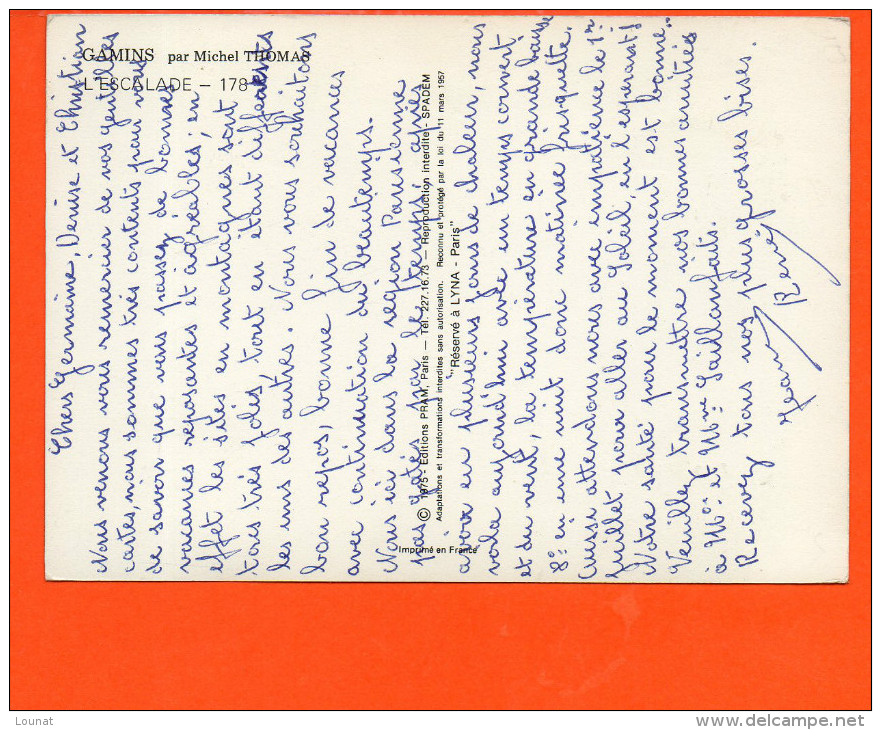 GAMINS par Michel THOMAS
L'ESCALADE – 178
Chers Germaine, Denise et Christian
Nous venons vous remercier de vos gentilles
cartes, nous sommes très contents pour vous
de savoir que vous passez de bonnes
vacances reposantes et agréables ; en
effet les sites en montagnes sont
tous très jolis, tout en étant différents
les uns des autres. Nous vous souhaitons
bon repos, bonne fin de vacances
avec continuation du beau temps.
Nous ici dans la région Parisienne
pas gatés par le temps, après
avoir eu plusieurs jours de chaleur, nous
voila aujourd'hui avec un temps couvert
et du vent, la température en grande baisse
8° en une nuit donc matinée frisquette.
Aussi attendons nous avec impatience le 1er
Juillet pour aller au Soleil, en l'espérant !
Notre santé pour le moment est bonne.
Veuillez transmettre nos bonnes amitiés
à Mr et Mme Saillanfaits.
Recevez tous nos plus grosses bises.
Jean René
© 1975 - Editions PRAM, Paris — Tél. 227.16.73 — Reproduction interdite - SPADEM
Adaptations et transformations interdites sans autorisation. Reconnu et protégé par la loi du 11 mars 1957
"Réservé à LYNA - Paris"
Imprimé en France
Lounat
www.delcampe.net